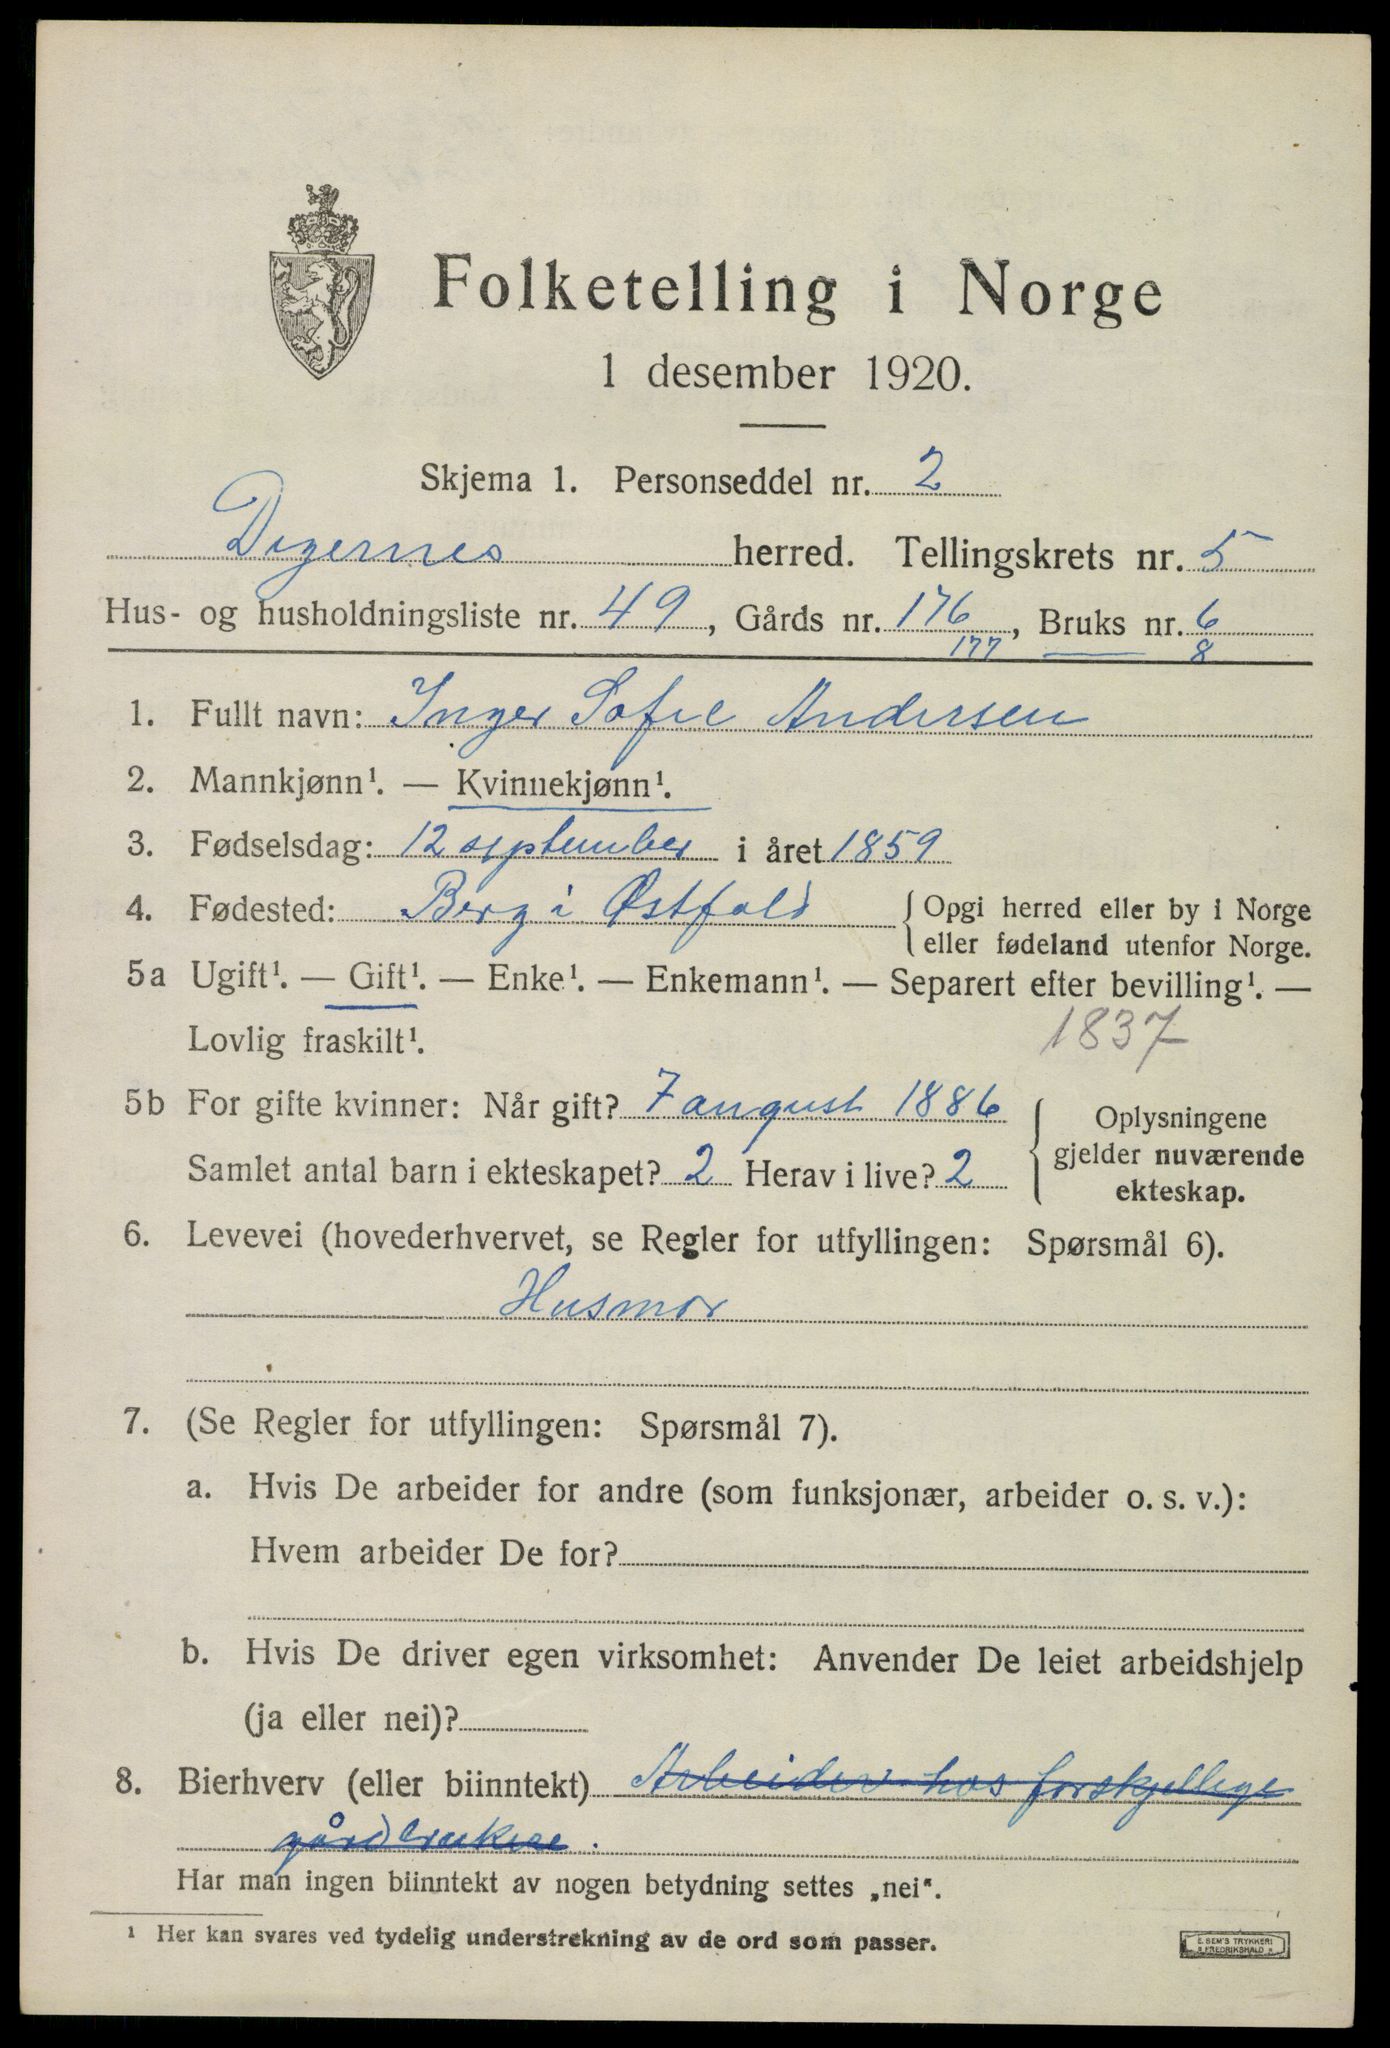 Folketelling i Norge
1 desember 1920.
Skjema 1. Personseddel nr. 2
Degernes herred. Tellingskrets nr. 5
Hus- og husholdningsliste nr. 49, Gårds nr. 176, Bruks nr. 6
177 8
1. Fullt navn: Inger Sofie Andersen
2. Mannkjønn¹. — Kvinnekjønn¹.
3. Fødselsdag: 12 september i året 1859
4. Fødested: Berg i Østfold { Opgi herred eller by i Norge
eller fødeland utenfor Norge.
5a Ugift¹. — Gift¹. — Enke¹. — Enkemann¹. — Separert efter bevilling¹. —
Lovlig fraskilt¹. 1837
5b For gifte kvinner: Når gift? 7 august 1886
Samlet antal barn i ekteskapet? 2 Herav i live? 2
{ Oplysningene
gjelder nuværende
ekteskap.
6. Levevei (hovederhvervet, se Regler for utfyllingen: Spørsmål 6).
Husmor
7. (Se Regler for utfyllingen: Spørsmål 7).
a. Hvis De arbeider for andre (som funksjonær, arbeider o. s. v.):
Hvem arbeider De for?
b. Hvis De driver egen virksomhet: Anvender De leiet arbeidshjelp
(ja eller nei)?
8. Bierhverv (eller biinntekt) Arbeider hos forskjellige
gårdbrukere.
Har man ingen biinntekt av nogen betydning settes „nei“.
¹ Her kan svares ved tydelig understrekning av de ord som passer.
E. SEM'S TRYKKERI
FREDRIKSHALD